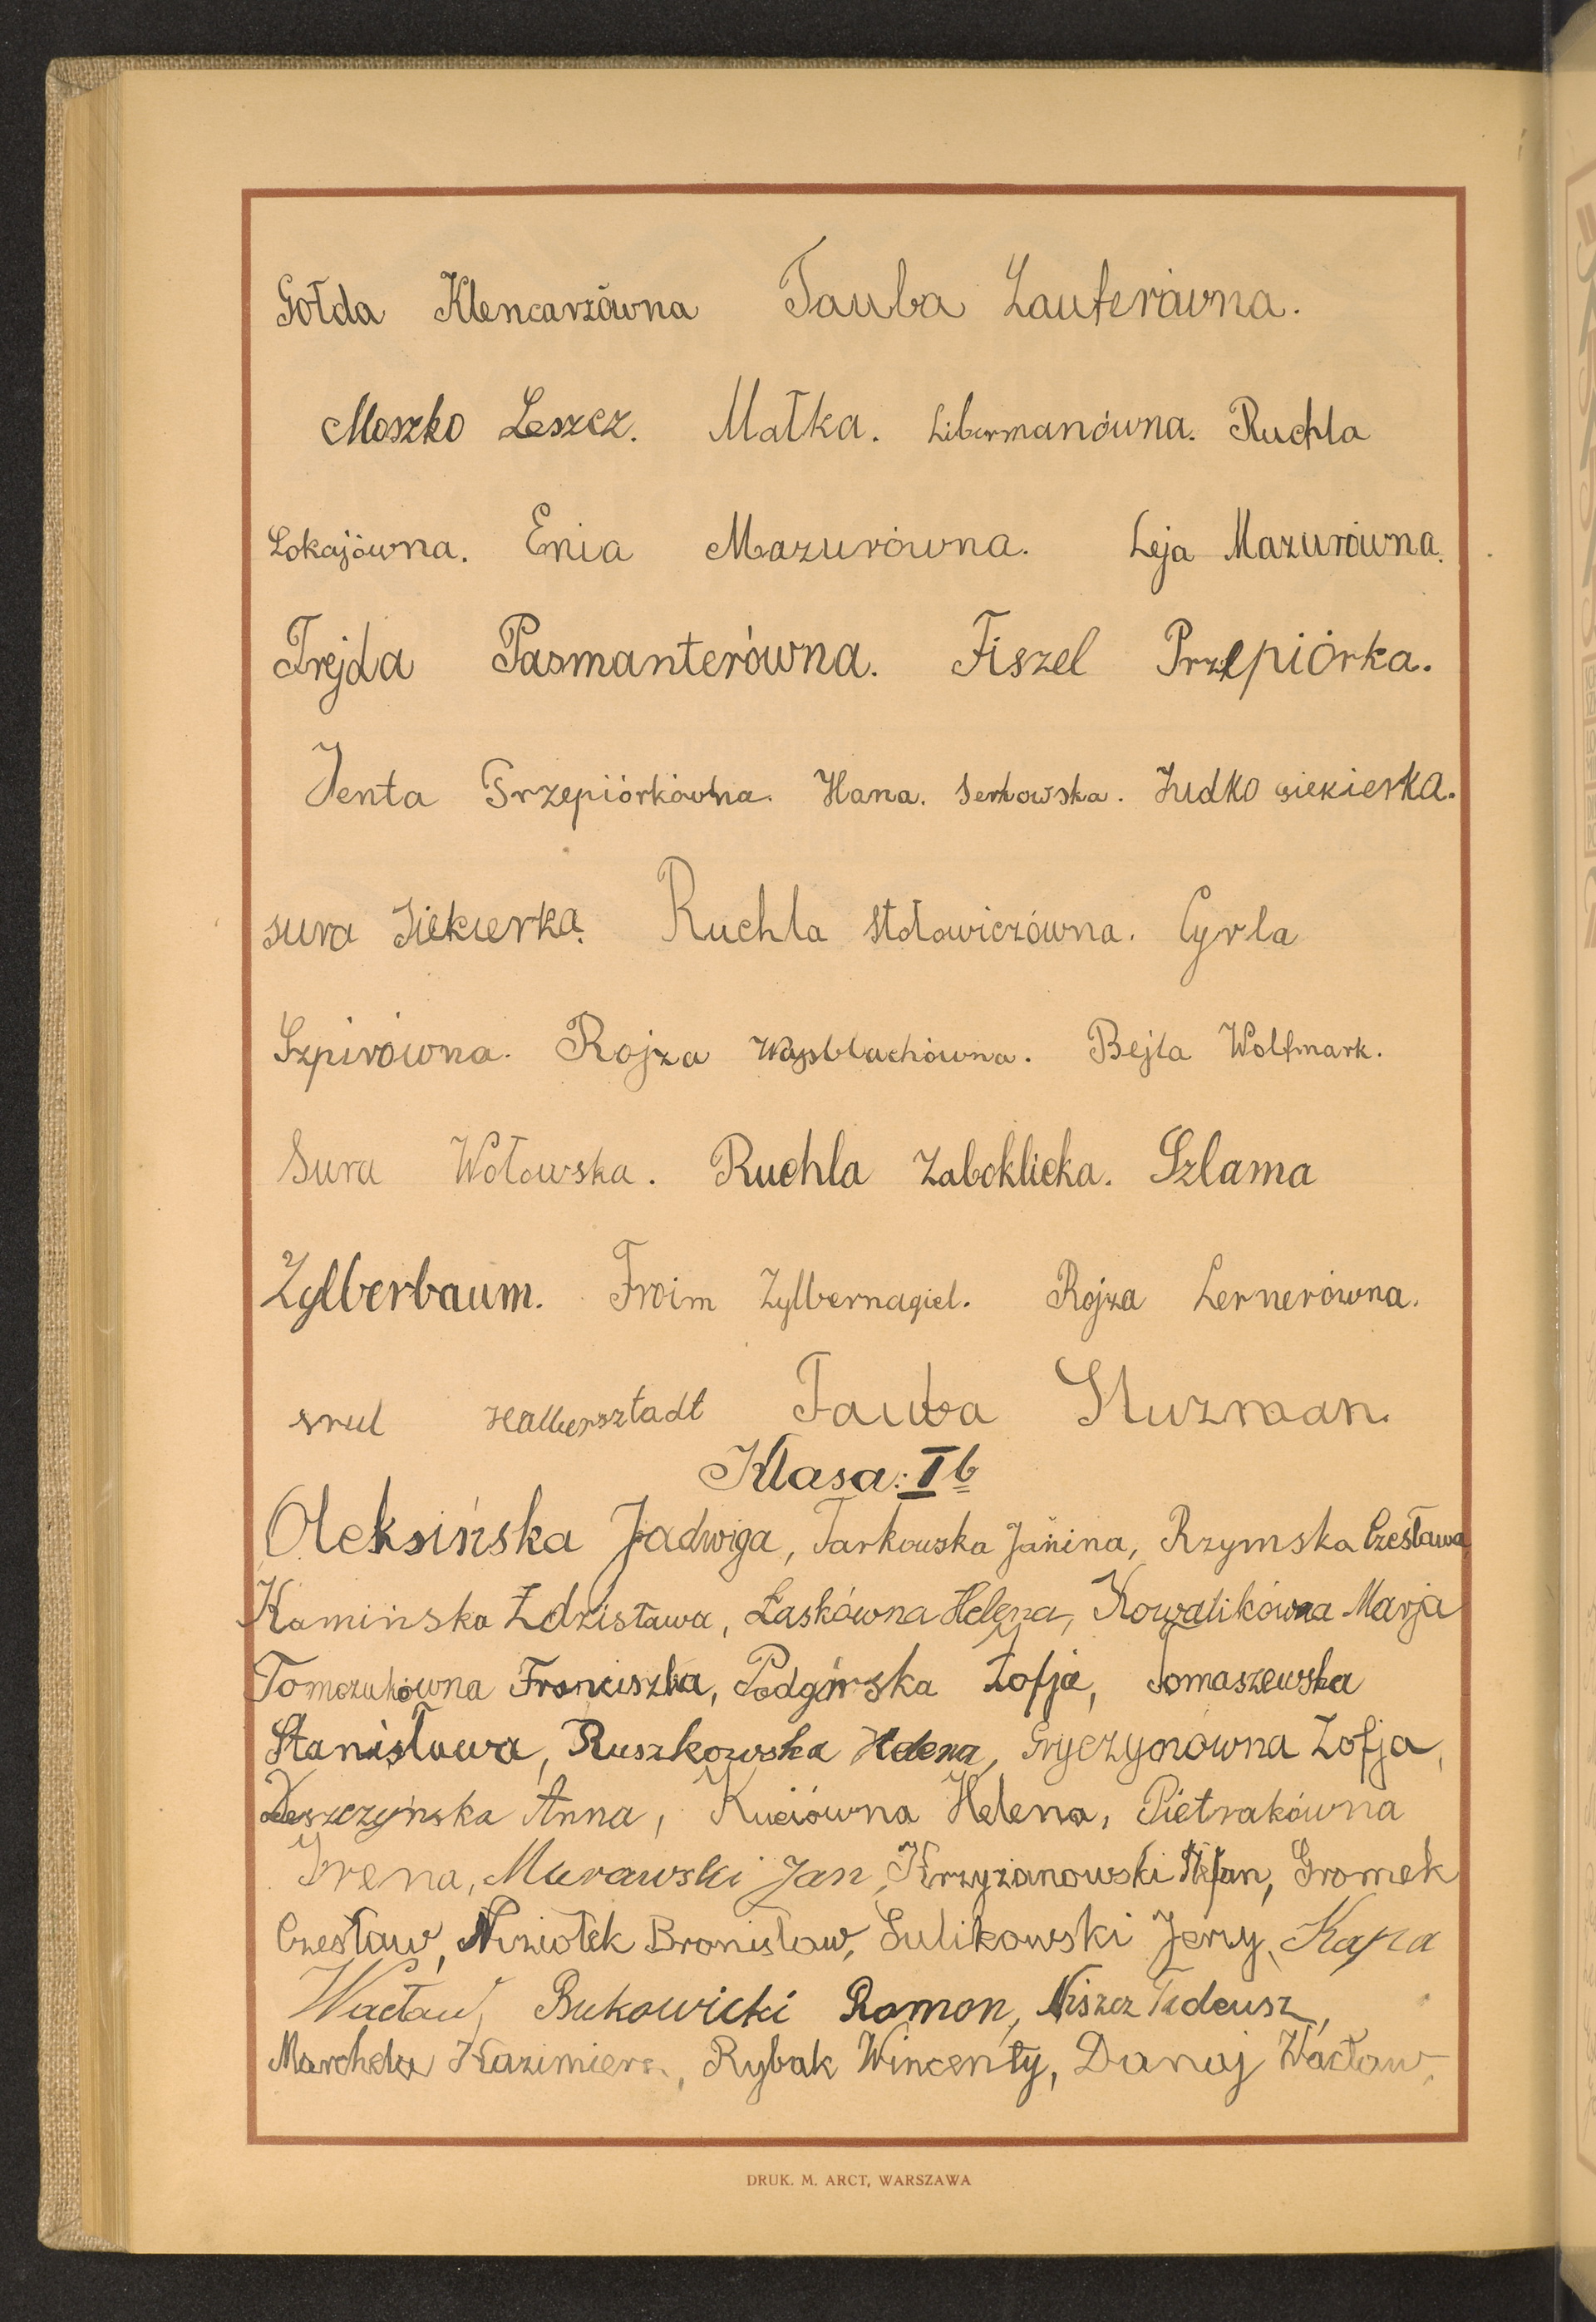 Gołda Klencarzówna Tauba Lauterówna.
Moszko Leszcz. Małka. Libermanówna. Ruchla
Lokajówna. Enia Mazurówna. Leja Mazurówna.
Frejda Pasmanterówna. Fiszel Przepiórka.
Jenta Przepiórkówna. Hana. Serkowska. Judko siekierka.
sura Siekierka. Ruchla Stołowiczówna. Cyrla
Szpirówna. Rojza Wajsblachówna. Bejla Wolfmark.
Sura Wołowska. Ruchla Zaboklicka. Szlama
Zylberbaum. Froim Zylbernagiel. Rojza Lernerówna.
srul Halbersztadt Tauba Sluzman.
Klasa: I b
Oleksińska Jadwiga, Tarkowska Janina, Rzymska Czesława
Kamińska Zdzisława, Laskówna Helena, Kowalikówna Marja
Tomczukówna Franciszka, Podgórska Zofja, Tomaszewska
Stanisława, Ruszkowska Helena, Gryczynówna Zofja,
Leszczyńska Anna, Kuciówna Helena, Pietrakówna
Irena, Murawski Jan, Krzyżanowski Stefan, Gromek
Czesław, Niziołek Bronisław, Sulikowski Jerzy, Kapa
Wacław, Bukowicki Roman, Niszcz Tadeusz,
Marchela Kazimierz, Rybak Wincenty, Danaj Wacław,
DRUK. M. ARCT, WARSZAWA